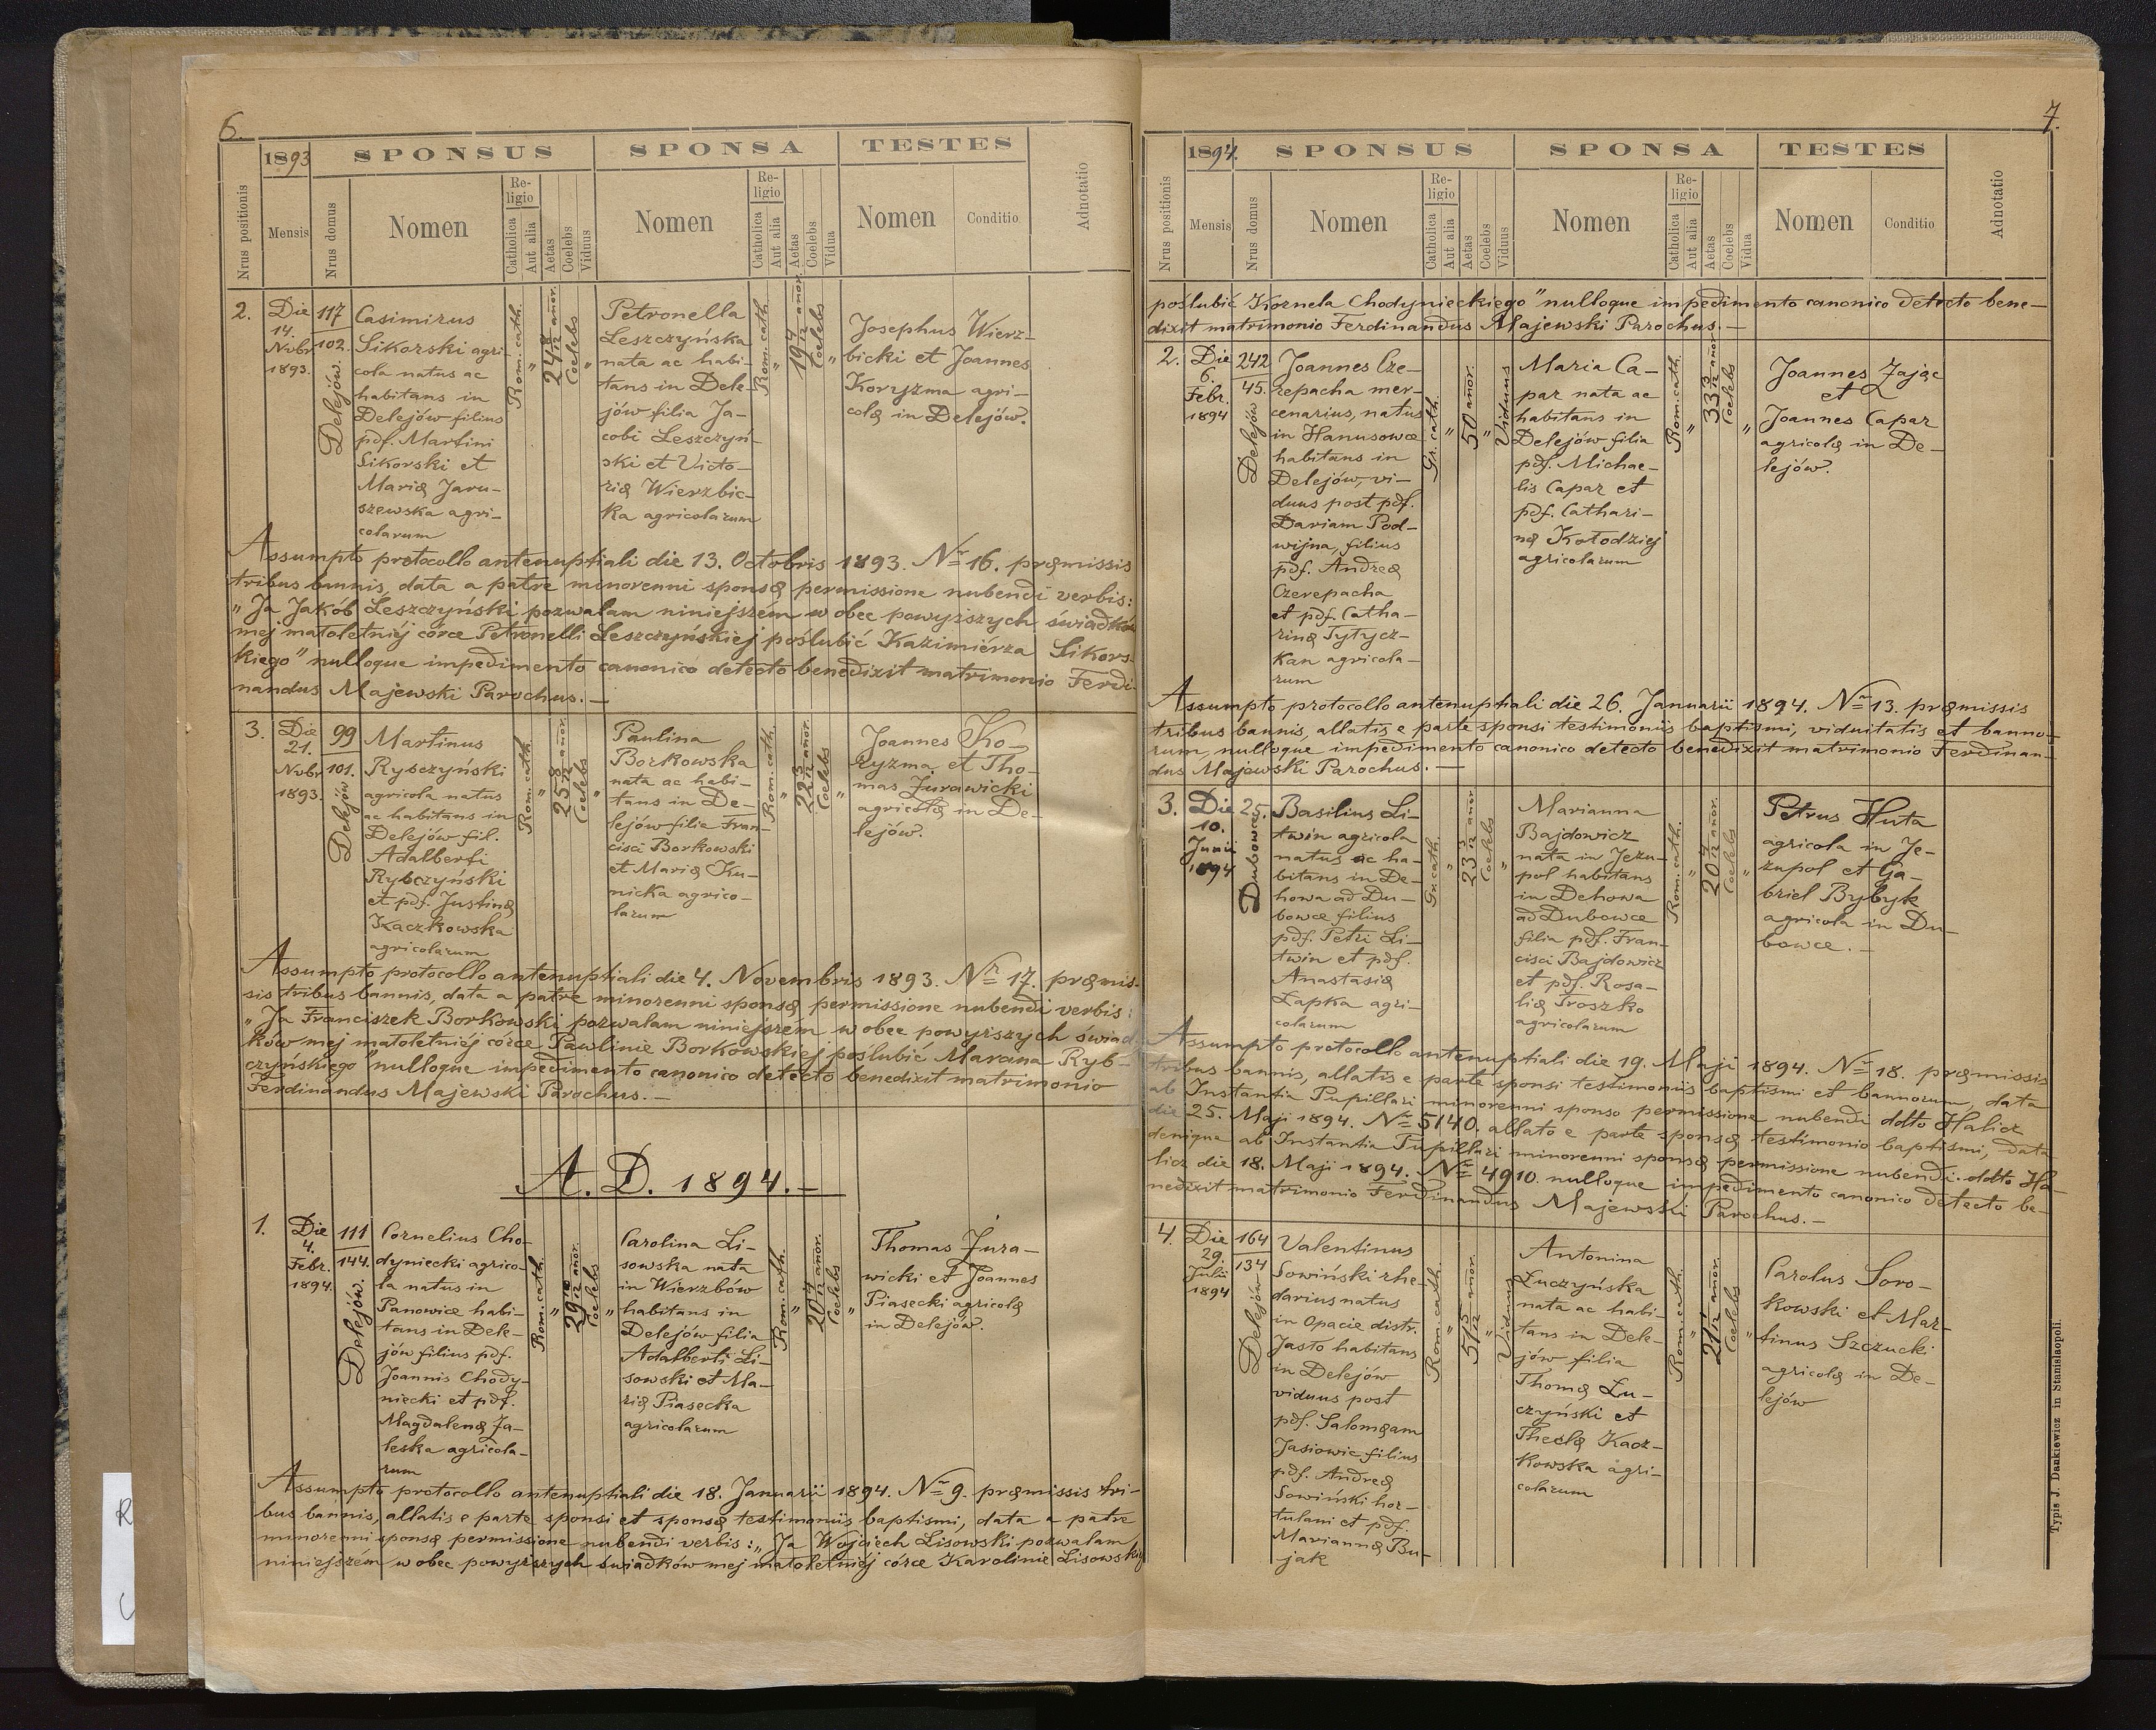 6.
1893
SPONSUS
SPONSA
TESTES
Nrus positionis
Mensis
Nrus domus
Nomen
Religio
Catholica
Aut alia
Aetas
Coelebs
Viduus
Nomen
Religio
Catholica
Aut alia
Aetas
Coelebs
Vidua
Nomen
Conditio
Adnotatio
2.
Die
14.
Nvbr
1893.
117
102.
Delejów.
Casimirus
Sikorski agri-
cola natus ac
habitans in
Delejów filius
pdf. Martini
Sikorski et
Mariæ Jaru-
szewska agri-
colarum
Rom. cath.
"
24 8/12 añor.
Coelebs
"
Petronella
Leszczyńska
nata ac habi-
tans in Dele-
jów filia Ja-
cobi Leszczyń-
ski et Victo-
riæ Wierzbic-
ka agricolarum
Rom. cath.
"
19 4/12 añor.
Coelebs
"
Josephus Wierz-
bicki et Joannes
Koryzma agri-
colæ in Delejów.
Assumpto protocollo antenuptiali die 13. Octobris 1893. Nr 16. præmissis
tribus bannis, data a patre minorenni sponsæ permissione nubendi verbis:
"Ja Jakób Leszczyński pozwalam niniejszém w obec powyższych świadków
mej małoletniéj córce Petronelli Leszczyńskiej poślubić Kazimiérza Sikors-
kiego" nulloque impedimento canonico detecto benedixit matrimonio Ferdi-
nandus Majewski Parochus.-
3.
Die
21.
Nvbr
1893.
99
101.
Delejów
Martinus
Rybczyński
agricola natus
ac habitans in
Delejów fil.
Adalberti
Rybczyński
et pdf. Justinæ
Kaczkowska
agricolarum
Rom. cath.
"
25 8/12 añor.
Coelebs
"
Paulina
Borkowska
nata ac habi-
tans in De-
lejów filia Fran-
cisci Borkowski
et Mariæ Ku-
nicka agrico-
larum
Rom. cath.
"
22 3/12 añor.
Coelebs
"
Joannes Ko-
ryzma et Tho-
mas Żurawicki
agricolæ in De-
lejów.
Assumpto protocollo antenuptiali die 4. Novembris 1893. Nr 17. præmis-
sis tribus bannis, data a patre minorenni sponsæ permissione nubendi verbis:
"Ja Franciszek Borkowski pozwalam niniejszém w obec powyższych świad-
ków mej małoletniéj córce Pawlinie Borkowskiej poślubić Marcina Ryb-
czyńskiego" nulloque impedimento canonico detecto benedixit matrimonio
Ferdinandus Majewski Parochus.-
A. D. 1894.-
1.
Die
4.
Febr.
1894.
111
144.
Delejów.
Cornelius Cho-
dyniecki agrico-
la natus in
Panowice habi-
tans in Dele-
jów filius pdf.
Joannis Chody-
niecki et pdf.
Magdalenæ Ja-
leska agricola-
rum
Rom. cath.
"
añor.
Coelebs
"
Carolina Li-
sowska nata
in Wierzbów
habitans in
Delejów filia
Adalberti Li-
sowski et Ma-
riæ Piasecka
agricolarum
Rom. cath.
"
20 4/12 añor.
Coelebs
"
Thomas Żura-
wicki et Joannes
Piasecki agricolæ
in Delejów.
Assumpto protocollo antenuptiali die 18. Januarii 1894. Nr 9. præmissis tri-
bus bannis, allatis e parte sponsi et sponsæ testimoniis baptismi, data a patre
minorenni sponsæ permissione nubendi verbis: "Ja Wojciech Lisowski pozwalam
niniejszém w obec powyższych świadków mej małoletniéj córce Karolinie Lisowskiej
7.
1894.
SPONSUS
SPONSA
TESTES
Nrus positionis
Mensis
Nrus domus
Nomen
Religio
Catholica
Aut alia
Aetas
Coelebs
Viduus
Nomen
Religio
Catholica
Aut alia
Aetas
Coelebs
Vidua
Nomen
Conditio
Adnotatio
poślubić Kornela Chodynieckiego" nulloque impedimento canonico detecto bene-
dixit matrimonio Ferdinandus Majewski Parochus.-
2.
Die
6.
Febr.
1894
242
45.
Delejów
Joannes Cze-
repacha mer-
cenarius, natus
in Hanusowce
habitans in
Delejów, vi-
duus post pdf.
Dariam Pod-
wijna, filius
pdf. Andreæ
Czerepacha
et pdf. Catha-
rinæ Tytycz-
kan agricola-
rum
Gr. cath.
"
50 añor.
"
Viduus
Maria Ca-
par nata ac
habitans in
Delejów filia
pdf. Michae-
lis Capar et
pdf. Cathari-
næ Kołodziej
agricolarum
Rom. cath.
"
33 3/12 añor
Coelebs
"
Joannes Zając
et
Joannes Capar
agricolæ in De-
lejów.
Assumpto protocollo antenuptiali die 26. Januarii 1894. Nr 13. præmissis
tribus bannis, allatis e parte sponsi testimoniis baptismi, viduitatis et banno-
rum, nulloque impedimento canonico detecto benedixit matrimonio Ferdinan-
dus Majewski Parochus.-
3.
Die
10.
Junii
1894
25.
Dubowce
Basilius Li-
twin agricola
natus ac ha-
bitans in De-
howa ad Du-
bowce filius
pdf. Petri Li-
twin et pdf.
Anastasiæ
Łapka agri-
colarum
Gr. cath.
"
23 3/12 añor
Coelebs
"
Marianna
Bajdowicz
nata in Jezu-
pol habitans
in Dehowa
ad Dubowce
filia pdf. Fran-
cisci Bajdowicz
et pdf. Rosa-
liæ Troszko
agricolarum
Rom. cath.
"
20 7/12 añor.
Coelebs
"
Petrus Huta
agricola in Je-
zupol et Ga-
briel Bybyk
agricola in Du-
bowce.-
Assumpto protocollo antenuptiali die 19. Maji 1894. Nr 18. præmissis
tribus bannis, allatis e parte sponsi testimoniis baptismi et bannorum, data
ab Instantia Pupillari minorenni sponso permissione nubendi ddto Halicz
die 25. Maji 1894. Nr 5140. allato e parte sponsæ testimonio baptismi, data
denique ab Instantia Pupillari minorenni sponsæ permissione nubendi ddto Ha-
licz die 18. Maji 1894. Nr 4910. nulloque impedimento canonico detecto be-
nedixit matrimonio Ferdinandus Majewski Parochus.-
4.
Die
29.
Julii
1894
164
134
Delejów
Valentinus
Sowiński rhe-
darius natus
in Opacie distr.
Jasło habitans
in Delejów
viduus post
pdf. Salomeam
Jasiowic filius
pdf. Andreæ
Sowiński hor-
tulani et pdf.
Mariannæ Bu-
jak
Rom. cath.
"
51 5/12 añor.
"
Viduus
Antonina
Łuczyńska
nata ac habi-
tans in Dele-
jów filia
Thomæ Łu-
czyński et
Theclæ Kacz-
kowska agri-
colarum
Rom. cath.
"
21 1/12 añor.
Coelebs
"
Carolus Soro-
kowski et Mar-
tinus Szczucki
agricolæ in De-
lejów
Typis J. Dankiewicz in Stanislaopoli.